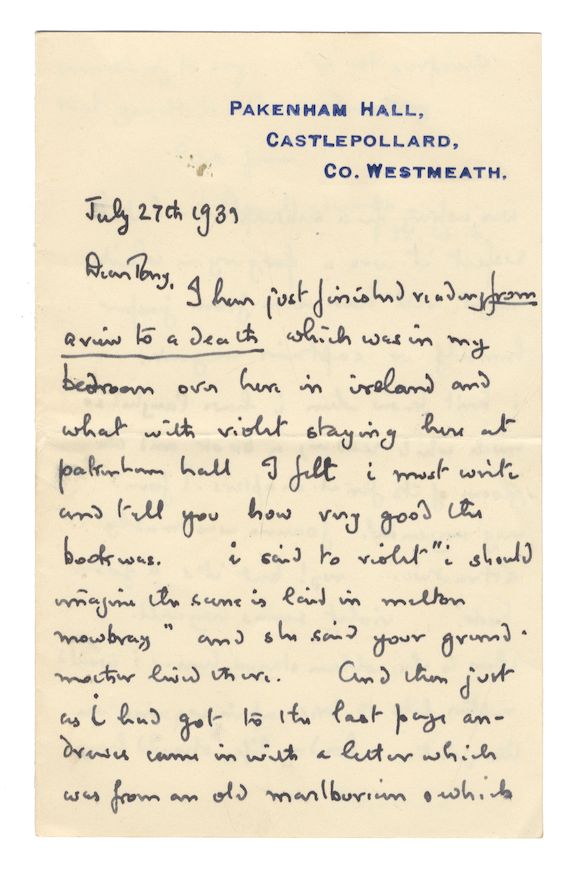 PAKENHAM HALL,
CASTLEPOLLARD,
CO. WESTMEATH.
July 27th 1939
Dear Tony,
I have just finished reading from
a view to a death which was in my
bedroom over here in ireland and
what with violet staying here at
pakenham hall I felt i must write
and tell you how very good the
book was. i said to violet "i should
imagine the scene is laid in melton
mowbray" and she said your grand-
mother lived there. And then just
as i had got to the last page an-
drews came in with a letter which
was from an old marlburian, which